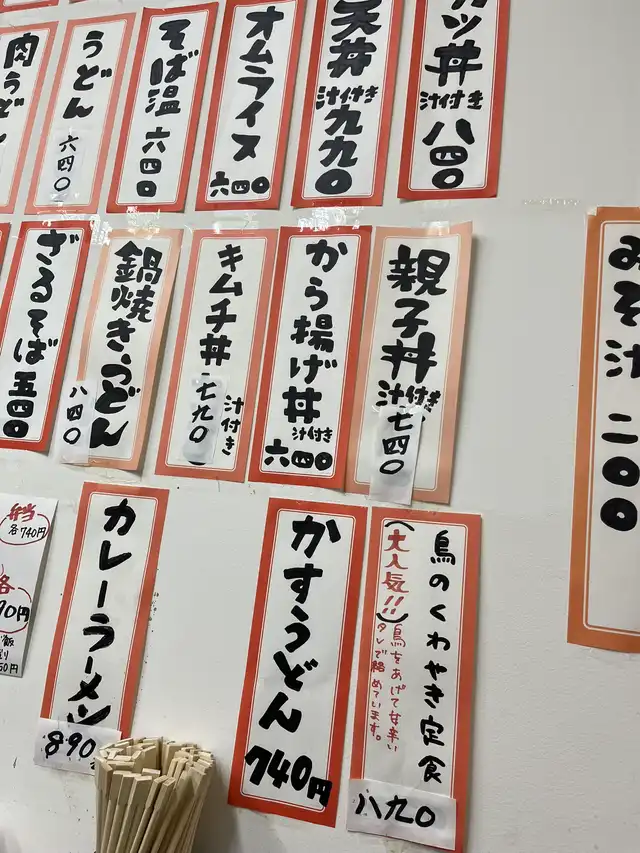 カツ丼
汁付き
八四〇
天丼
汁付き
九九〇
オムライス
六四〇
そば温
六四〇
うどん
六四〇
肉うどん
みそ汁
二〇〇
親子丼
汁付き
七四〇
から揚げ丼
汁付き
六四〇
キムチ丼
汁付き
七九〇
鍋焼きうどん
八四〇
ざるそば
五四〇
鳥のくわやき定食
(大人気!!)
鳥をあげて甘辛い
タレで絡めています。
八九〇
かすうどん
740円
カレーラーメン
890
弁当
各740円